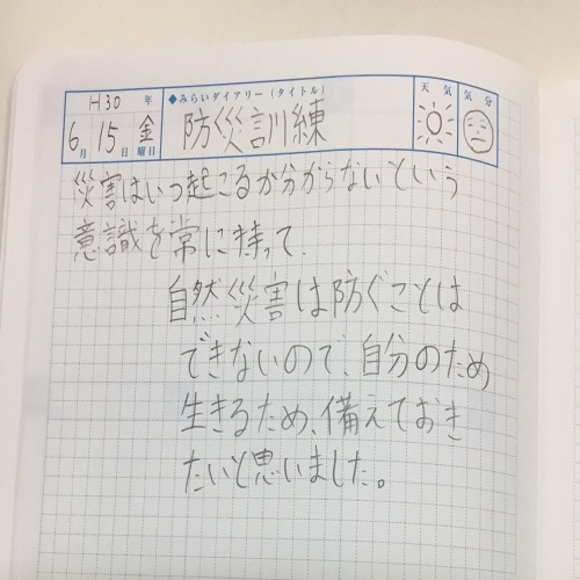 H30 年
6月 15日 金曜日
◆みらいダイアリー(タイトル)
防災訓練
天気
気分
災害はいつ起こるか分からないという
意識を常に持って、
自然災害は防ぐことは
できないので、自分のため
生きるため、備えておき
たいと思いました。